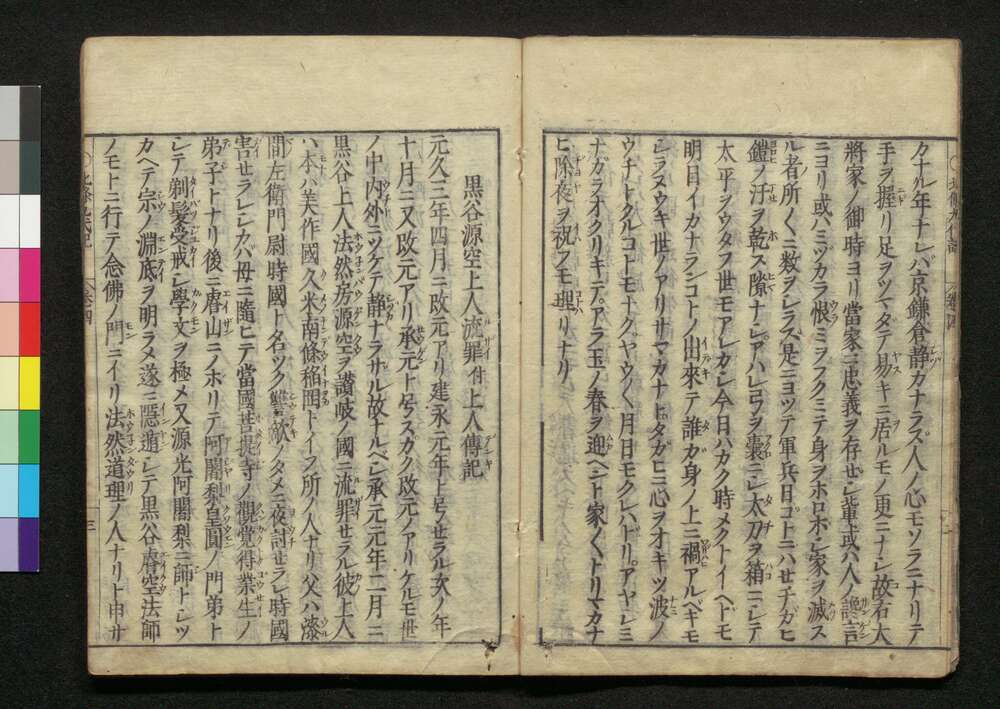 クナル年ナレバ京鎌倉静カナラズ人ノ心モソラニナリテ
手ヲ握リ足ヲツマダテ易キニ居ルモノ更ニナシ故右大
將家ノ御時ヨリ當家ニ忠義ヲ存ゼシ輩或ハ人ノ讒言
ニヨリ或ハミヅカラ恨ミヲフクミテ身ヲホロボシ家ヲ滅ス
ル者所々ニ数ヲシラズ是ニヨツテ軍兵日ゴトニハセチガヒ
鎧ノ汗ヲ乾ス隙ナシアハレ弓ヲ嚢ニシ太刀ヲ箱ニシテ
太平ヲウタフ世モアレカシ今日ハカク時メクトイヘドモ
明日イカナランコトノ出來テ誰ガ身ノ上ニ禍アルベキモ
シラヌウキ世ノアリサマカナトタガヒニ心ヲオキツ波ノ
ウチトクルコトモナクヤウ〱月日モクレハドリアヤシミ
ナガラオクリキテアラ玉ノ春ヲ迎ヘント家〱トリマカナ
ヒ除夜ヲ祝フモ理リナリ
黒谷源空上人流罪付上人傳記
元久三年四月ニ改元アリ建永元年ト号セラル次ノ年
十月ニ又改元アリ承元ト号スカク改元ノアリケルモ世
ノ中内外ニツケテ静ナラザル故ナルベシ承元元年二月ニ
黒谷上人法然房源空ヲ讃岐ノ國ニ流罪セラル彼上人
ハ本ハ美作國久米南條稲岡トイフ所ノ人ナリ父ハ漆
間左衛門尉時國ト名ヅク讐敵ノタメニ夜討セラレ時國
害セラレシカバ母ニ随ヒテ當國菩提寺ノ觀覚得業生ノ
弟子トナリ後ニ叡山ニノボリテ阿闍梨皇圓ノ門弟ト
シテ剃髪受戒シ學文ヲ極メ又源光阿闍梨ニ師トシツ
カヘテ宗ノ淵底ヲ明ラメ遂ニ隠遁シテ黒谷睿空法師
ノモトニ行テ念佛ノ門ニイリ法然道理ノ人ナリト申サ